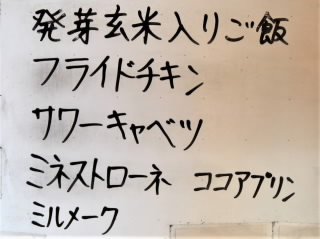 発芽玄米入りご飯
フライドチキン
サワーキャベツ
ミネストローネ ココアプリン
ミルメーク